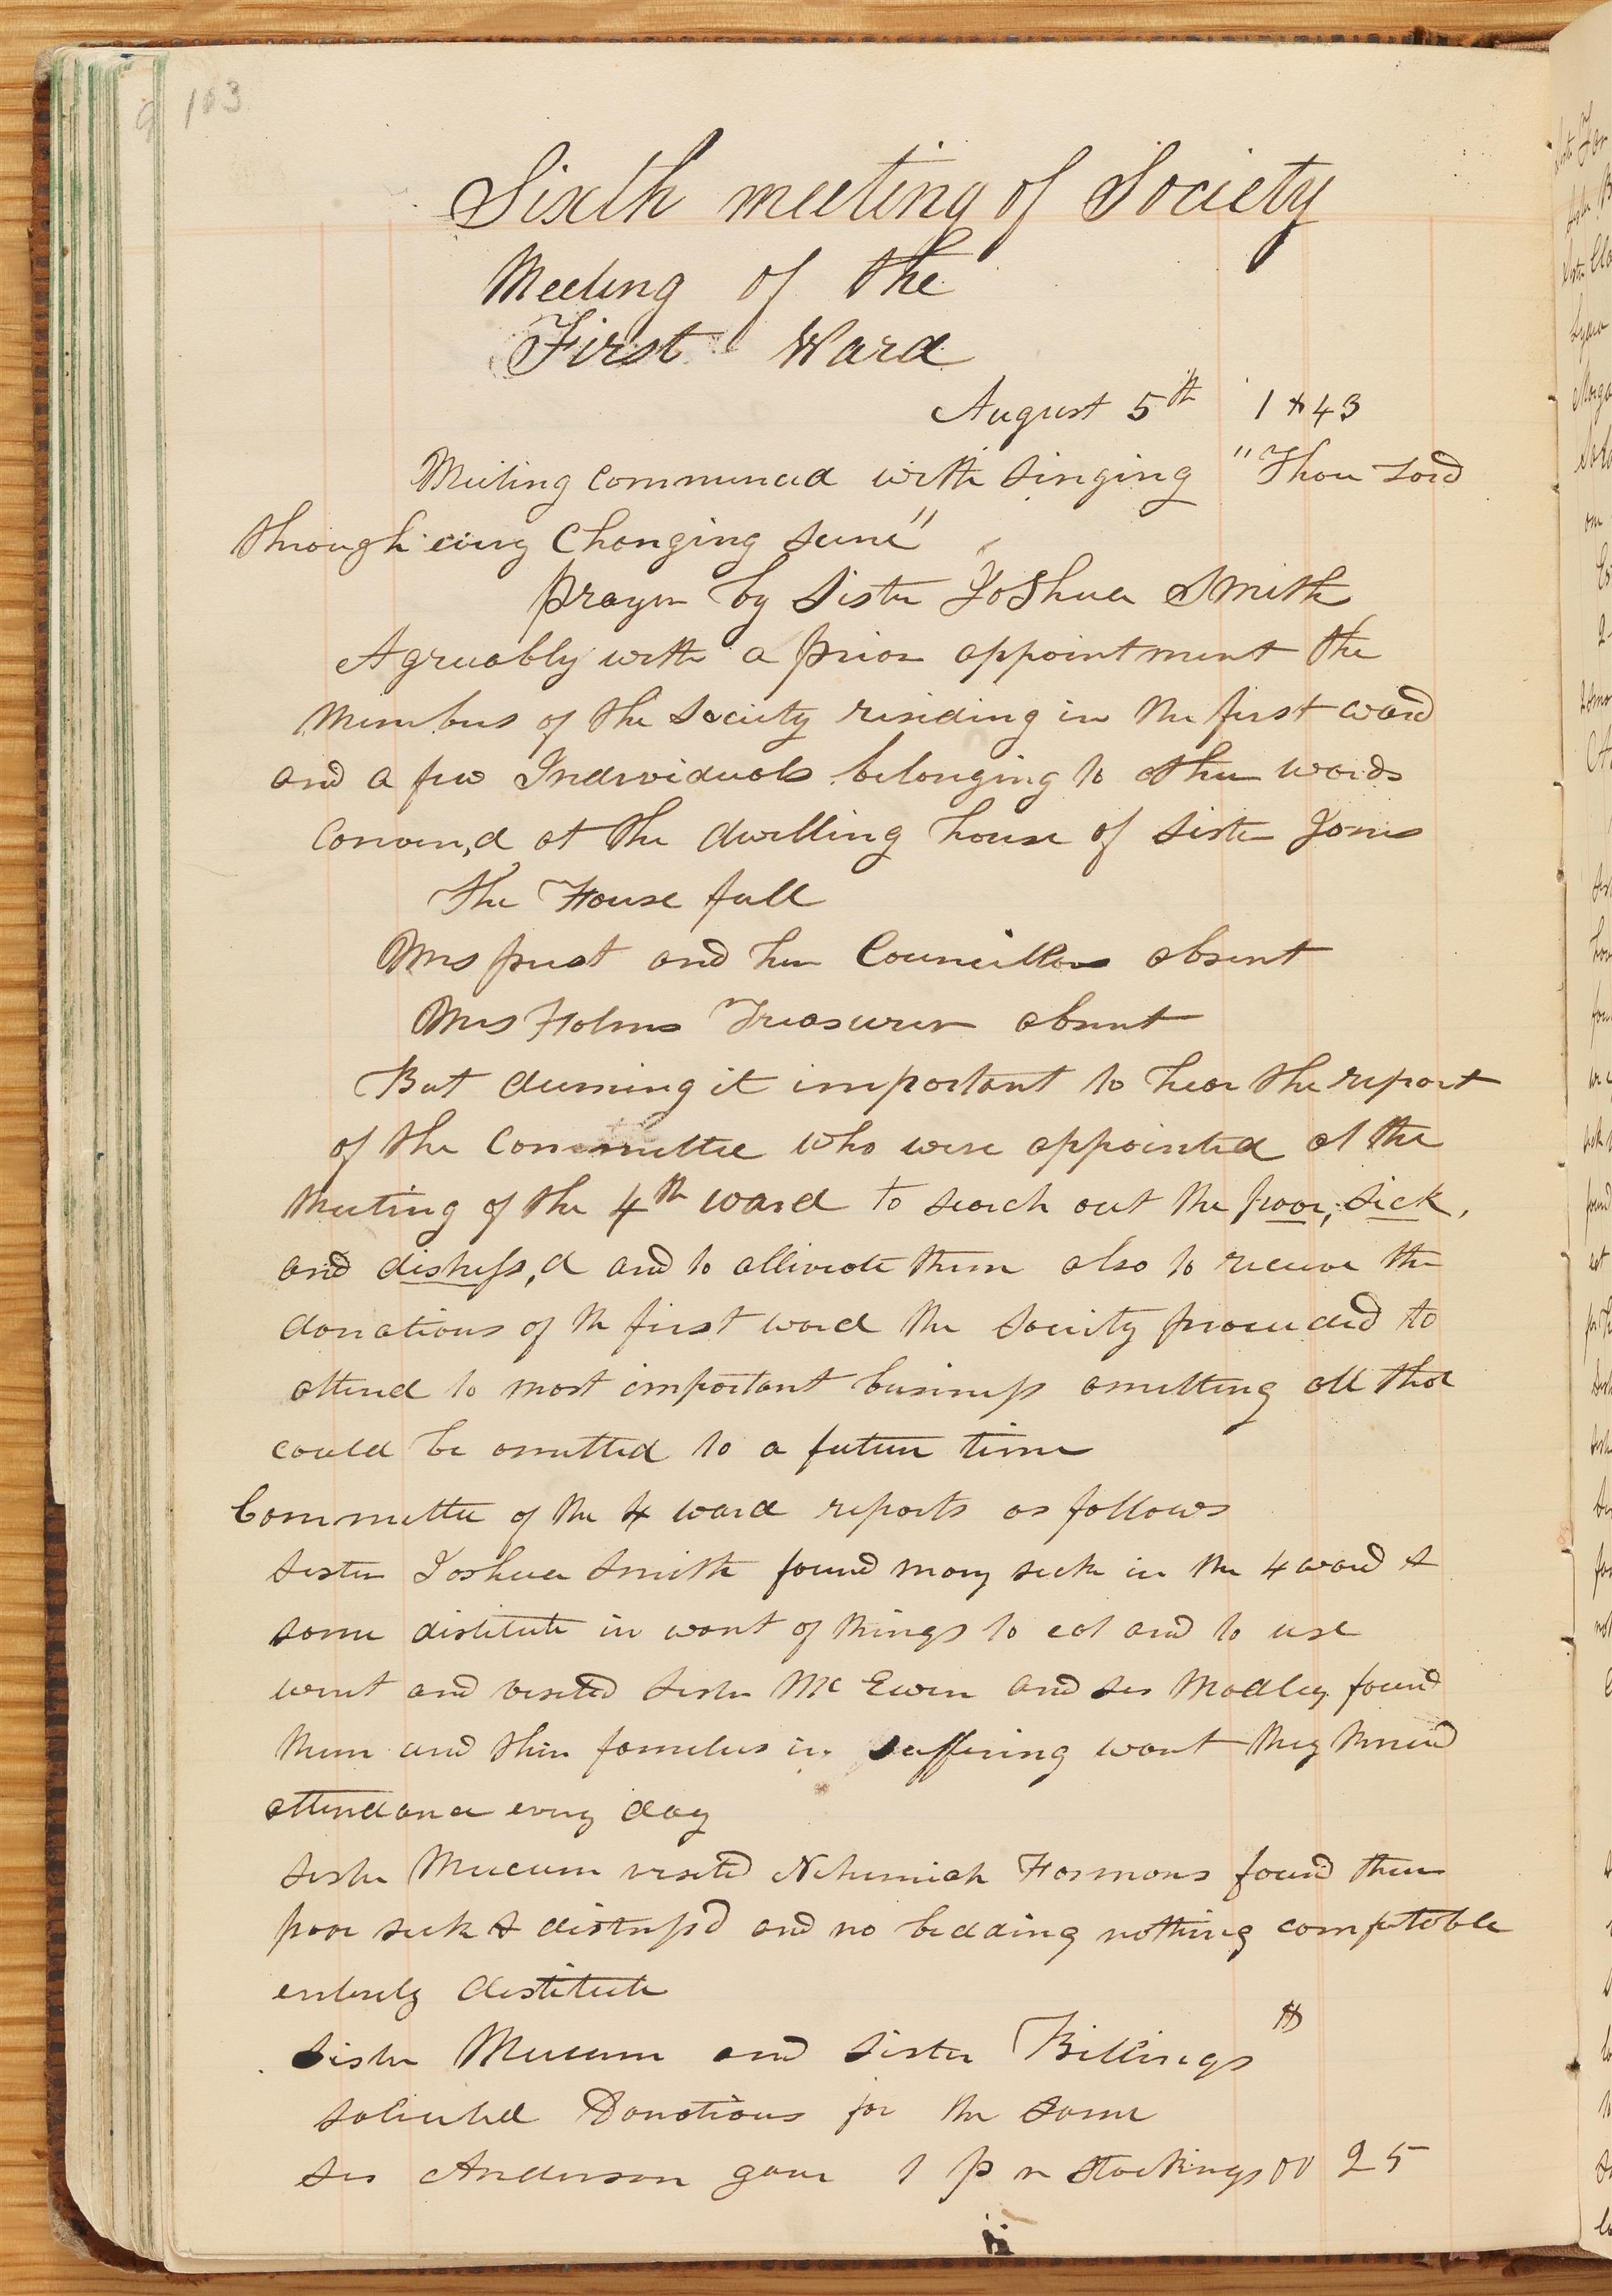 103
Sixth meeting of Society
Meeting of the
First Ward
August 5th 1843
Meeting commenced with singing "Thou Lord
through every changing scene"
prayer by Sister Joshua Smith
Agreeably with a prior appointment the
members of the Society residing in the first ward
and a few Individuals belonging to other wards
Conven,d at the dwelling house of Sister Jones
The House full
Mrs prest and her Councillors absent
Mrs Holms Treasurer absent
But deeming it important to hear the report
of the Committee who were appointed at the
meeting of the 4th ward to search out the poor, sick,
and distress,d and to alliviate them also to receive the
donations of the first ward the Society proceeded to
attend to most important business omitting all that
could be omitted to a future time
Committee of the 4 ward reports as follows
Sister Joshua Smith found many sick in the 4 ward &
some distitute in want of things to eat and to use
went and visited Sister Mc Ewen and Sis Modley found
them and their families in suffering want they kneed
attendance every day
Sister Mecum visited Nehemiah Harmons found them
poor sick & distress'd and no bedding nothing comfortable
entirely destitute
Sister Mecum and Sister Billings
solicited Donations for the same
Sis Anderson gave 1 p r stockings 00 25